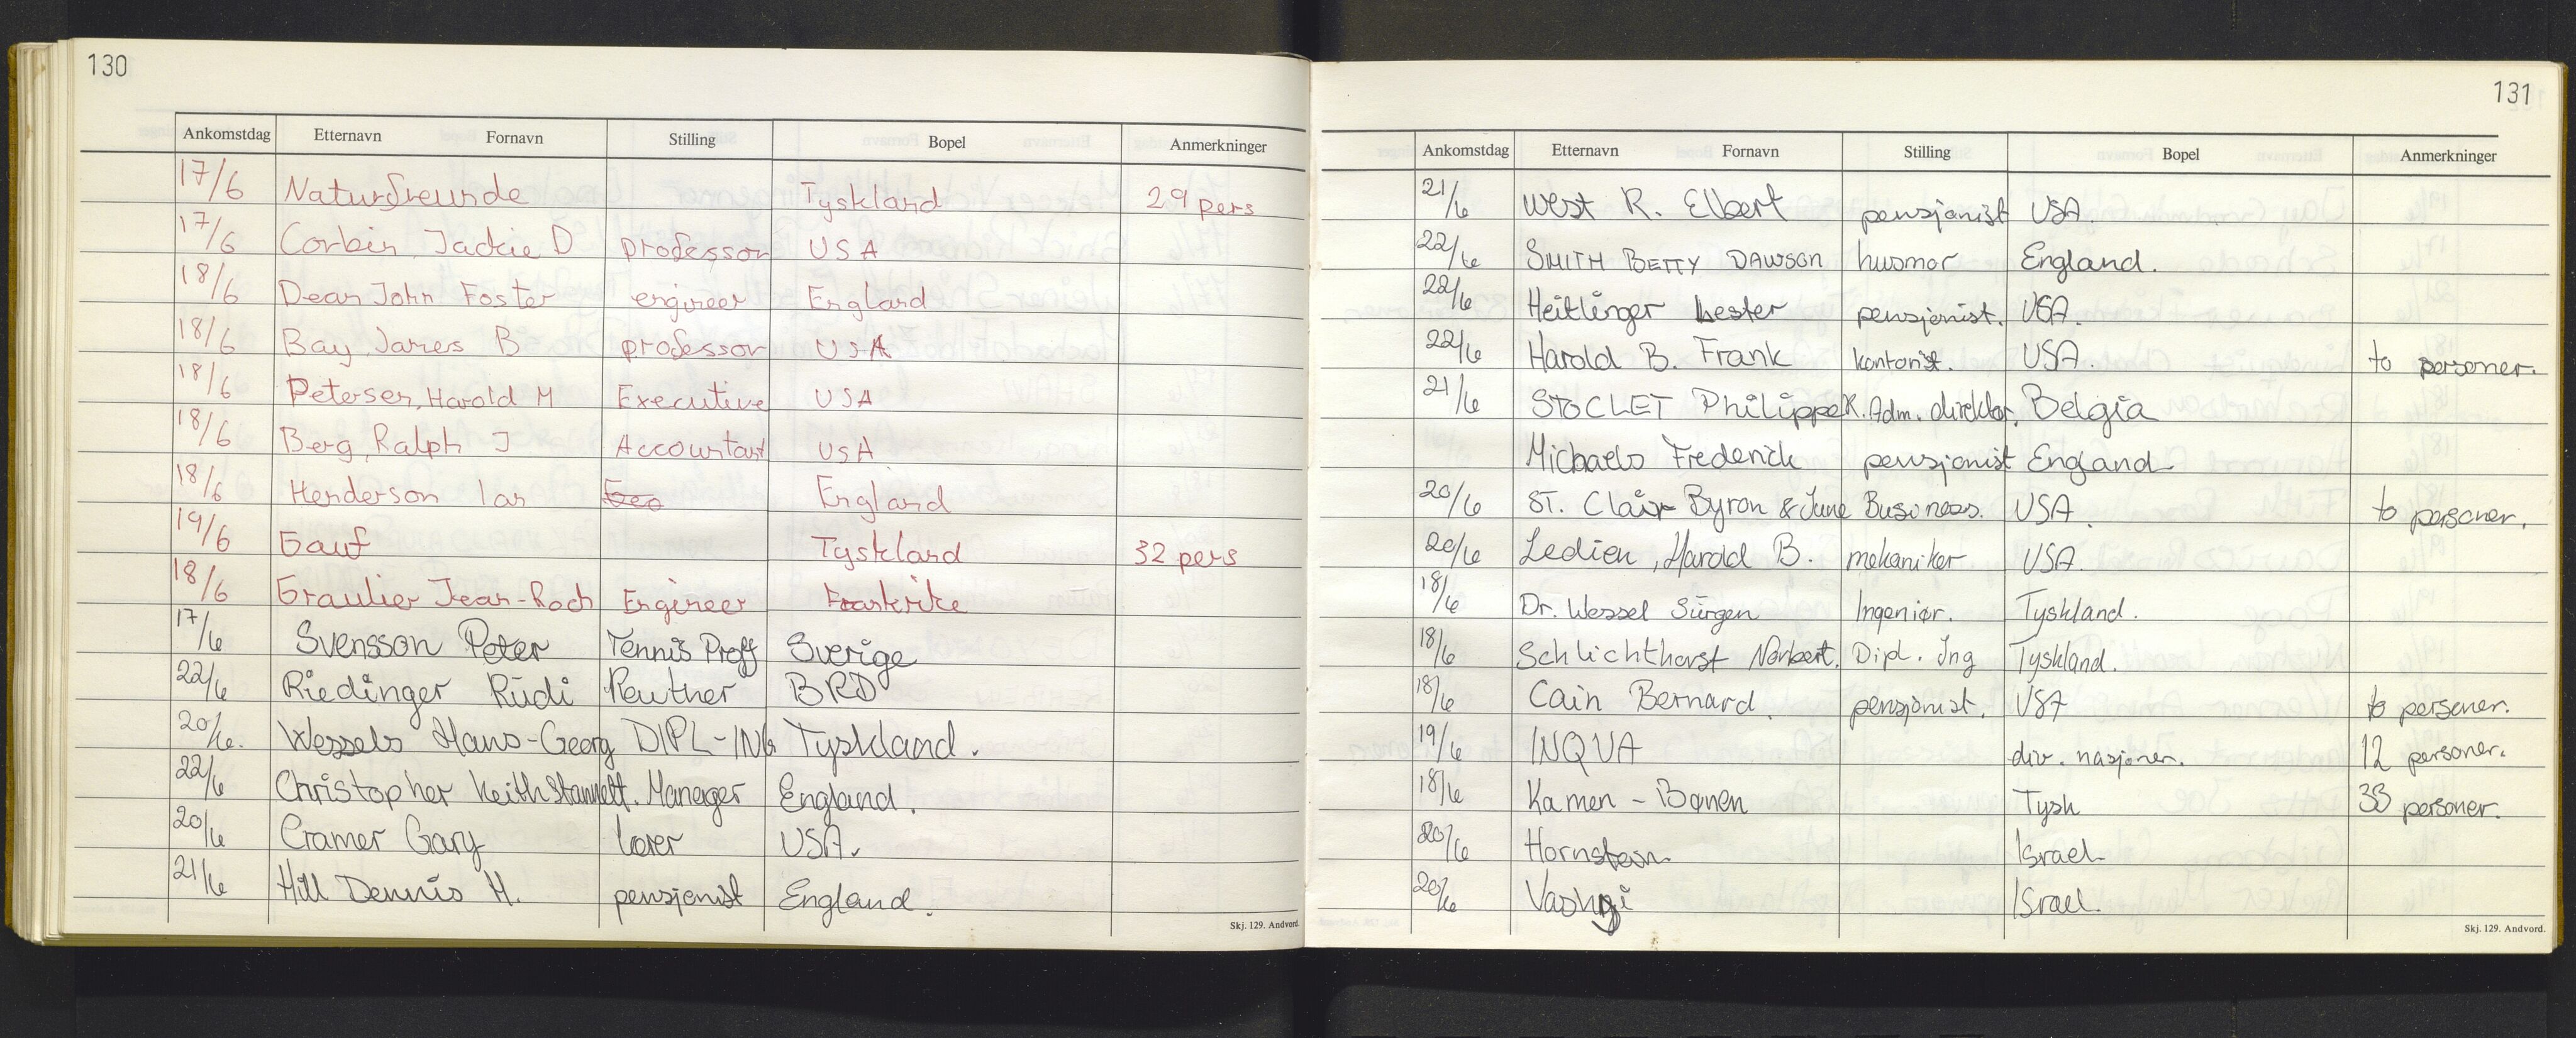 130
Ankomstdag Etternavn Fornavn Stilling Bopel Anmerkninger
17/6 Naturfreunde Tyskland 29 pers
17/6 Corbin, Jackie D professor USA
18/6 Dean John Foster engineer England
18/6 Bay, James B professor USA
18/6 Petersen, Harold M Executive USA
18/6 Berg, Ralph J Accountant USA
18/6 Henderson Ian England
19/6 Gauf Tyskland 32 pers
18/6 Graulier Jean-Roch Engineer Frankrike
17/6 Svensson Peter Tennis Proff Sverige
22/6 Riedinger Rüdi Reuther BRD
20/6. Wessels Hans-Georg DIPL-ING Tyskland.
22/6 Christopher Keith Stannett. Manager England.
20/6 Cramer Gary lærer USA.
21/6 Hill Dennis H. pensjonist England.
Skj. 129. Andvord.
131
Ankomstdag Etternavn Fornavn Stilling Bopel Anmerkninger
21/6 West R. Elbert pensjonist USA.
22/6 SMITH BETTY DAWSON husmor England.
22/6 Heitlinger Lester pensjonist. USA.
22/6 Harold B. Frank kontorist. USA. to personer.
21/6 STOCLET Philippe K. Adm. direktør. Belgia
Michaels Frederick pensjonist England
20/6 ST. Clair Byron & June Business. USA. to personer.
20/6 Ledien, Harold B. mekaniker USA.
18/6 Dr. Wessel Jürgen Ingeniør. Tyskland.
18/6 Schlichthorst Norbert. Dipl. Ing Tyskland.
18/6 Cain Bernard. pensjonist. USA to personer.
19/6 INQUA div. nasjoner. 12 personer.
18/6 Kamen - Bønen Tysk 33 personer.
20/6 Hornstein Israel
20/6 Israel.
Skj. 129. Andvord.